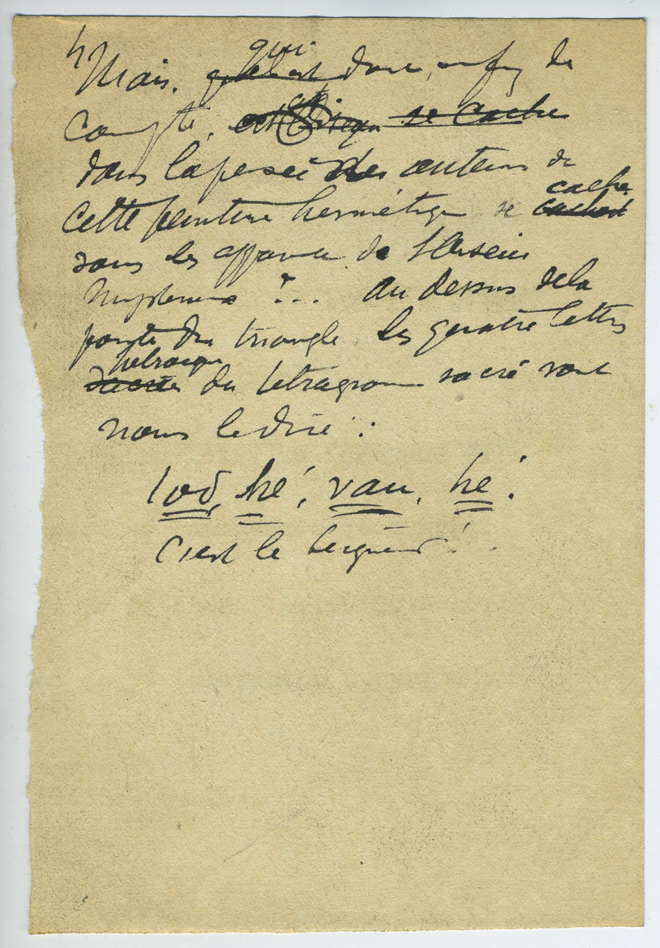 Mais, qui donc, en fin de
compte, se cache
dans la pensée des auteurs de
cette peinture hermétique se cacher
sous les apparences de
? ... Au dessus de la
pointe du triangle les quatre lettres
hébraïques du tétragramme sacré vont
nous le dire :
Iod, hé, vau, hé.
C'est le Seigneur !